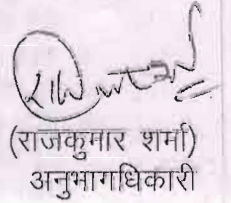 (राजकुमार शर्मा)
अनुभागधिकारी